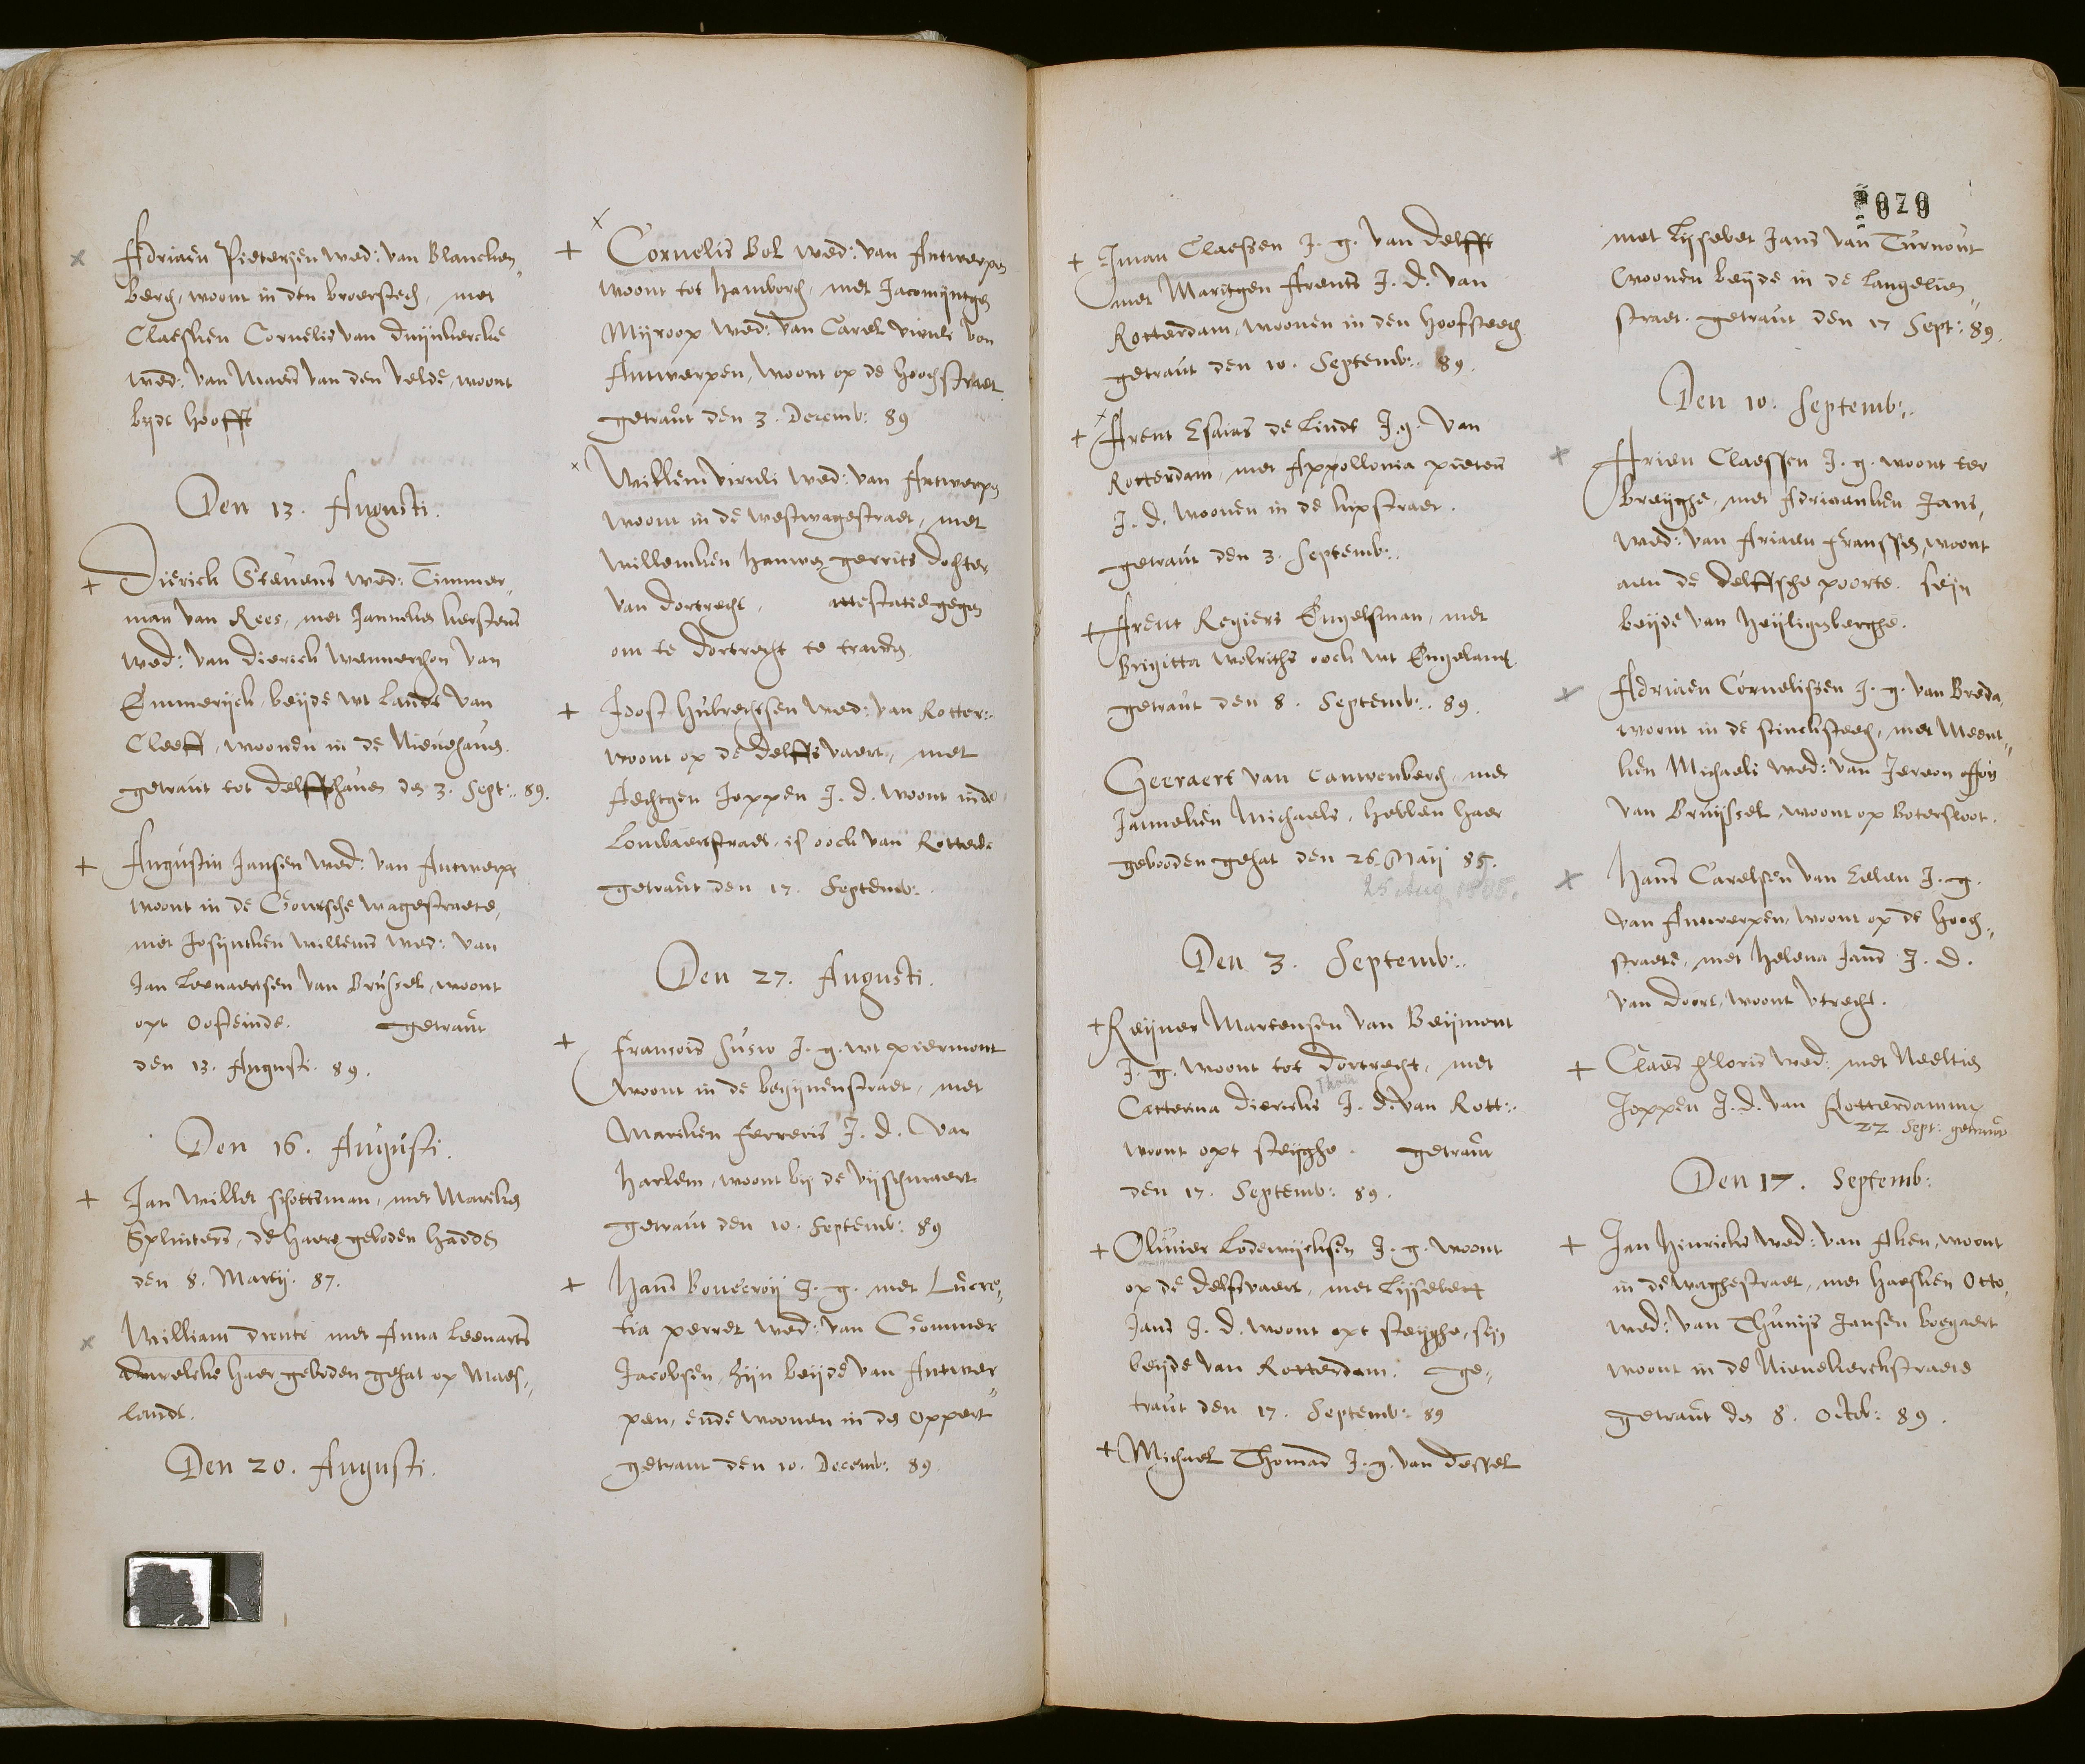 Adriaen Pietersen wed: van Blancken
berch, woont in den broerstech, met
Claesken Cornelis van Duynkercke
wed: van Maerten van den Velde, woont
byde hoofft
Den 13. Augusti.
+ Dierick Stevens wed: Timmer,,
man van Rees, met Janneken kerstens
wed: van Dierick Wannerchon van
Emmerijck, beijde wt Lande van
Cleeff, woonen in de Nieuehaven.
getraut tot Delffshaven den 3. Sept:. 89.
+ Augustin Jansen wed: van Antwerpen
woont in de Goutsche wagestraete,
met Josijntken Willems wed: van
Jan Leenaertsen van Brussel, woont
opt Oosteinde. getraut
den 13. Augusti. 89.
Den 16. Augusti.
+ Jan Willet schottsman, met Mariken
Splinters, de haere geboden hadden
den 8. Martij. 87.
x William met Anna Leenarts
dewelcke haer geboden gehat op Maes,,
landt.
Den 20. Augusti.
+ Cornelis Bol wed: van Antwerpen
woont tot Hamborch, met Jacomijntgen
Mijroop wed: van Carel Viruli von
Antwerpen, woont op de hoochstraet
getraut den 3. Decemb: 89
x Willem Viruli wed: van Antwerpen
woont in de westwagestraet, met
Willemken Hanwen gerrits dochter
van Dortrecht, attestatie gegeven
om te Dortrecht te trauwen
+ Joost Hubrechtsen wed: van Rotter:.
woont op de Delffsvaert, met
Aechtgen Joppen J. D. woont inde
Lombaertstraet, is oock van Rotterd.
getraut den 17. Septemb:.
Den 27. Augusti.
+ Francois Susio J. g. wt piermont
woont in de begijnenstraet, met
Mariken Ferreris J. D. van
Harlem, woont bij de vijschmaert
getraut den 10. Septemb: 89
+ Hans Bonecroij J. g. met Lucre,,
tia perret wed: van Gommer
Jacobsen, Zijn beijde van Antwer,,
pen, ende woonen in den Oppert
getraut den 10. Decemb: 89
+ Iman Claessen J. g. van Delfft
met Maritgen Arents J. D. van
Rotterdam, woonen in den Hoofsteech
getraut den 10. Septemb:. 89.
+ Arent Esaias de Linde J. g. van
Rotterdam, met Appollonia pieters
J. D. woonen in de kipstraet.
getraut den 3. Septemb:.
+ Arent Regiers Engelsman, met
Brigitta Wolriths oock wt Engelant
getraut den 8. Septemb:. 89.
Geeraert van Cauwenberch, met
Janneken Michaels, hebben haer
gebooden gehat den 26. Maij 85.
25 Aug 1585.
Den 3. Septemb:.
+ Reijner Martensen van Beijmont
J. g. woont tot Dortrecht, met
Catterina Diericks J. D. van Rott:.
woont opt steijghe. getraut
den 17. Septemb: 89.
+ Olivier Lodewijcksen J. g. woont
op de Delfsvaert, met Lijsebett
Jans J. D. woont opt steijghe, sijn
beijde van Rotterdam. ge,,
traut den 17. Septemb: 89
+ Michael Thomas J. g. van Dessel
070
met Lijsebet Jans van Turnout
woonen beijde in de Langelien,,
straet. getraut den 17 Sept: 89.
Den 10. Septemb:.
x Arien Claessen J. g. woont ter
Breijghe, met Adriaenken Jans,
wed: van Ariaen Franssen, woont
aen de Delffsche poorte. sijn
beijde van Heijligenberghe.
Adriaen Cornelissen J. g. van Breda,
woont in de stincksteech, met Meent,,
ken Michaels wed: van Jeroon
van Bruijssel, woont op Botersloot.
x Hans Carelsen van Eelen J. g.
van Antwerpen, woont op de hooch,,
straete, met Helena Jans J. D.
van Doort, woont Vtrecht.
+ Claes Floris wed: met Neeltien
Joppen J. D. van Rotterdamm
22 Sept: getraut
Den 17. Septemb:
+ Jan Hinricks wed: van Aken, woont
in de Waghestraet, met Haesken Otto,
wed: van Thunijs Jansen boegaert
woont in de Nieuekerckstraete
getraut den 8. Octob: 89.